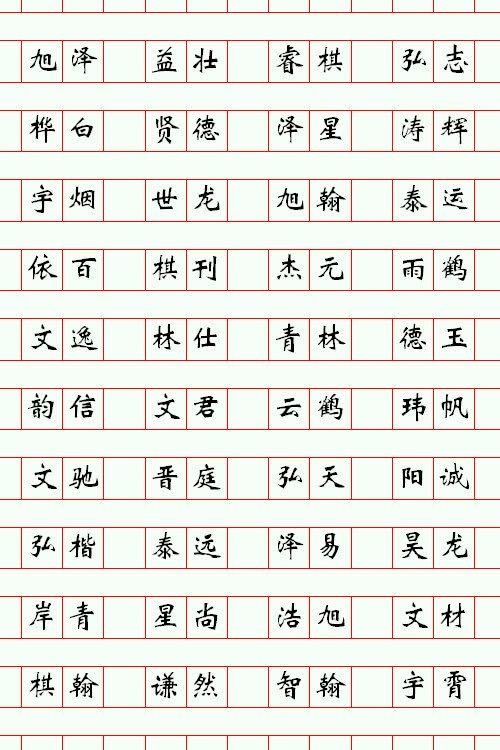 旭泽 益壮 睿棋 弘志
桦白 贤德 泽星 涛辉
宇烟 世龙 旭翰 泰运
依百 棋刊 杰元 雨鹤
文逸 林仕 青林 德玉
韵信 文君 云鹤 玮帆
文驰 晋庭 弘天 阳诚
弘楷 泰远 泽易 昊龙
岸青 星尚 浩旭 文材
棋翰 谦然 智翰 宇霄